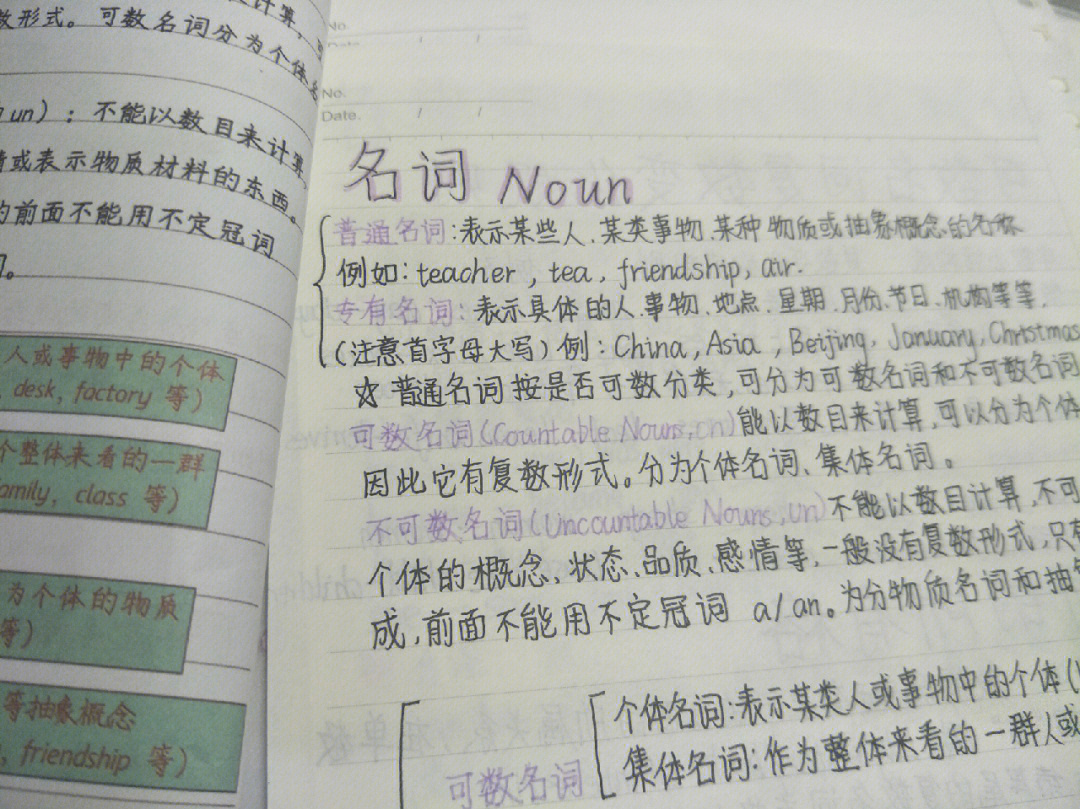 计算,
数形式。可数名词分为个体名
un):不能以数目来计算,
情或表示物质材料的东西。
的前面不能用不定冠词
人或事物中的个体
desk, factory 等)
个整体来看的一群
family, class 等)
为个体的物质
等)
等抽象概念
friendship 等)
No.
Date.
No.
Date.
名词 Noun
普通名词:表示某些人、某类事物、某种物质或抽象概念的名称
例如: teacher, tea, friendship, air.
专有名词:表示具体的人、事物、地点、星期、月份、节日、机构等等.
(注意首字母大写)例: China, Asia, Beijing, January, Christmas
☆普通名词按是否可数分类,可分为可数名词和不可数名词
可数名词(Countable Nouns,cn)能以数目来计算,可以分为个体
因此它有复数形式。分为个体名词、集体名词。
不可数名词(Uncountable Nouns,un)不能以数目计算,不可
个体的概念、状态、品质、感情等,一般没有复数形式,只有
成,前面不能用不定冠词 a/an。为分物质名词和抽象
个体名词:表示某类人或事物中的个体(
集体名词:作为整体来看的一群人或
可数名词